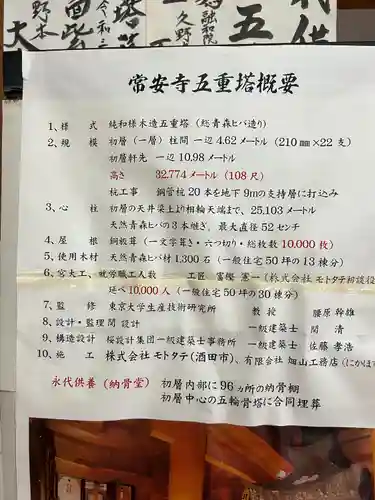 久野
五
大
常安寺五重塔概要
1、様　式　純和様木造五重塔（総青森ヒバ造り）
2、規　模　初層（一層）柱間 一辺 4.62 メートル（210 ㎜×22 支）
初層軒先　一辺 10.98 メートル
高さ　32.774 メートル（108 尺）
杭工事　鋼管杭 20 本を地下 9mの支持層に打込み
3、心　柱　初層の天井梁土より相輪天端まで、25,103 メートル
天然青森ヒバの 3 本継ぎ、最大直径 52 センチ
4、屋　根　銅板葺（一文字葺き・六つ切り・総枚数 10,000 枚）
5、使用木材　天然青森ヒバ材 1,300 石（一般住宅 50 坪の 13 棟分）
6、宮大工、就労職工人数　工匠　富樫 憲一（株式会社 モトタテ相談役
延べ 10,000 人（一般住宅 50 坪の 30 棟分）
7、監　修　東京大学生産技術研究所　教　授　腰原 幹雄
8、設計・監理 間 設計　一級建築士　間　清
9、構造設計　桜設計集団一級建築士事務所　一級建築士　佐藤 孝浩
10、施　工　株式会社 モトタテ（酒田市）、有限会社 畑山工務店（にかほ
永代供養（納骨堂）　初層内部に 96 ヵ所の納骨棚
初層中心の五輪骨塔に合同埋葬